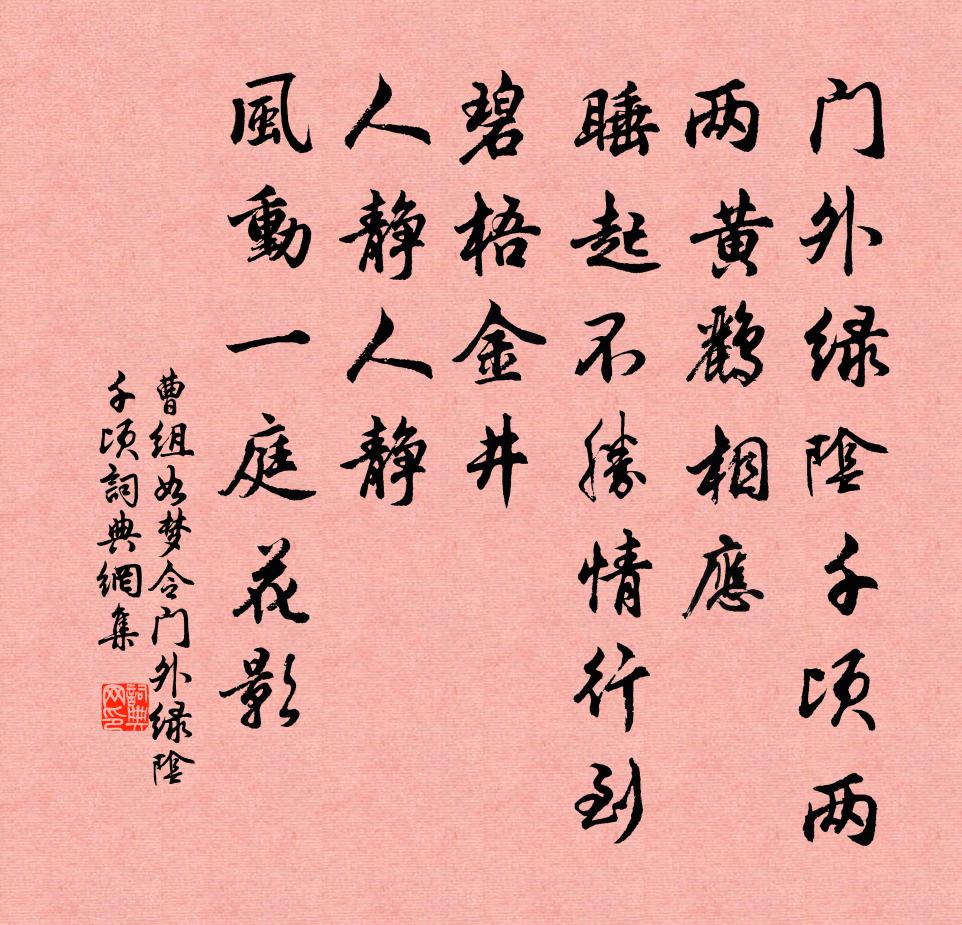 门外绿陰千顷两
两黄鹂相應
睡起不勝情行到
碧梧金井
人静人静
風動一庭花影
曹组如梦令门外绿陰
千顷詞典網集
詞典
网印